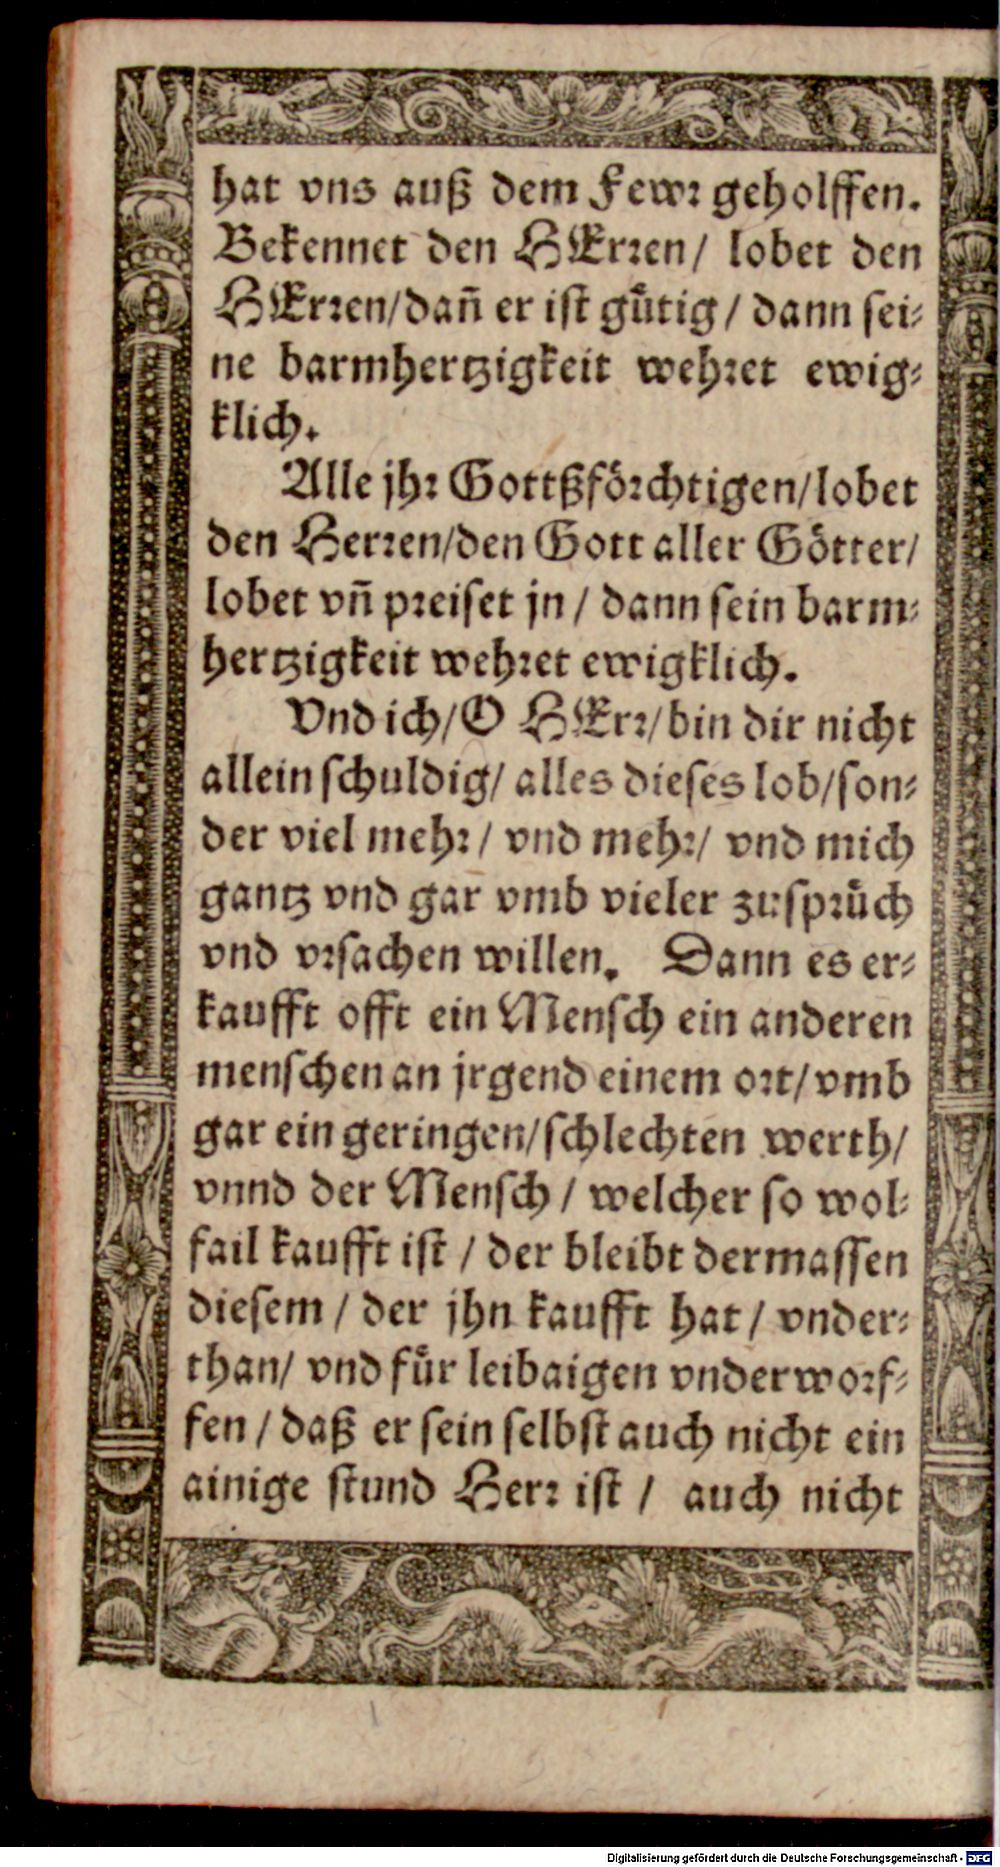 hat vns auß dem Fewr geholffen.
Bekennet den HErren/ lobet den
HErren/dañ er ist gütig/ dann sei⸗
ne barmhertzigkeit wehret ewig⸗
klich.
Alle jhr Gottßförchtigen/lobet
den Herren/den Gott aller Götter/
lobet vñ preiset jn/ dann sein barm⸗
hertzigkeit wehret ewigklich.
Vnd ich/O HErr/bin dir nicht
allein schuldig/ alles dieses lob/son⸗
der viel mehr/ vnd mehr/ vnd mich
gantz vnd gar vmb vieler zusprüch
vnd vrsachen willen. Dann es er⸗
kaufft offt ein Mensch ein anderen
menschen an jrgend einem ort/ vmb
gar ein geringen/schlechten werth/
vnnd der Mensch/ welcher so wol⸗
fail kaufft ist/ der bleibt dermassen
diesem/ der jhn kaufft hat/ vnder⸗
than/ vnd für leibaigen vnderworf⸗
fen/ daß er sein selbst auch nicht ein
ainige stund Herr ist/ auch nicht
Digitalisierung gefördert durch die Deutsche Forschungsgemeinschaft - DFG